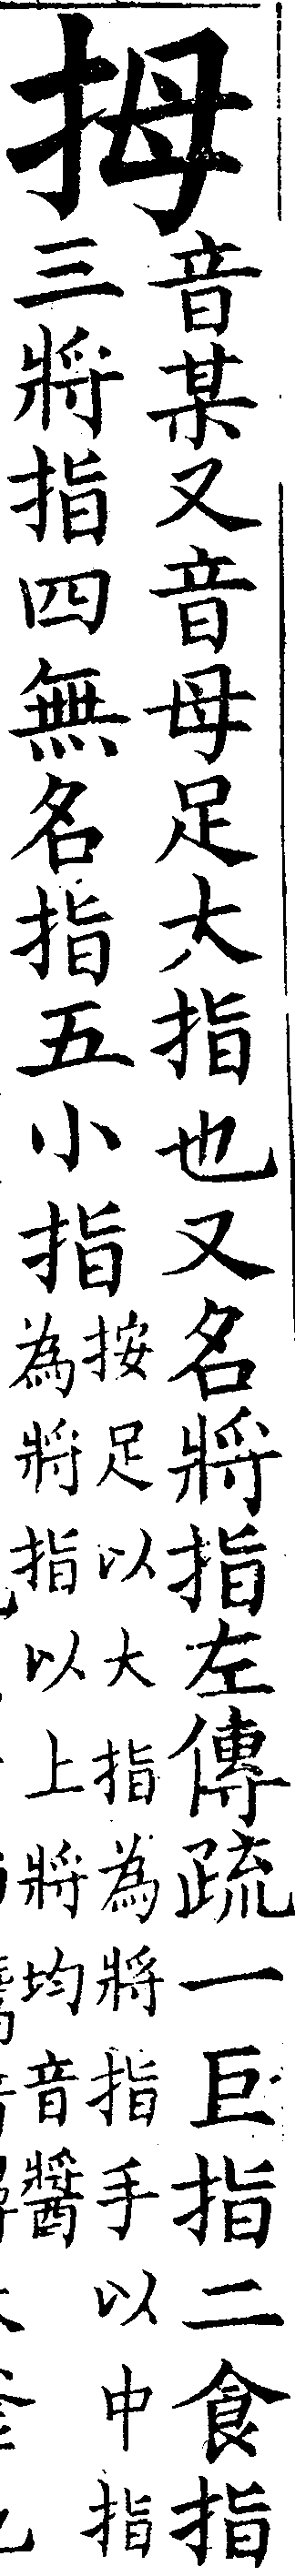 拇
音某又音母足大指也又名將指左傳疏一巨指二食指
三將指四無名指五小指
按足以大指為將指手以中指
為將指以上將均音醬